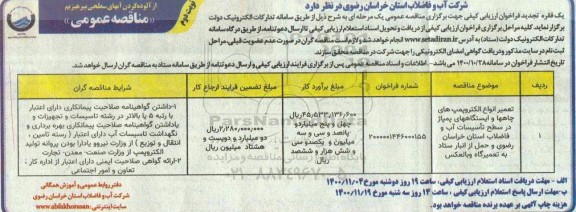 از آلوده کردن آبهای سطحی بپرهیزیم
«مناقصه عمومی»
نوبت دوم
شرکت آب و فاضلاب استان خراسان رضوی در نظر دارد
یک فقره تجدید فراخوان ارزیابی کیفی جهت برگزاری مناقصه عمومی یک مرحله ای به شرح ذیل از طریق سامانه تدارکات الکترونیک دولت
برگزار نماید. کلیه مراحل برگزاری فراخوان ارزیابی کیفی از دریافت و تحویل اسناد استعلام ارزیابی کیفی تا ارسال دعوتنامه از طریق درگاه سامانه
تدارکات الکترونیک دولت (ستاد) به آدرس www.setadiran.ir انجام خواهد شد و لازم است مناقصه گران در صورت عدم عضویت قبلی، مراحل
ثبت نام در سایت مذکور و دریافت گواهی امضای الکترونیکی را جهت شرکت در مناقصه محقق سازند.
تاریخ انتشار فراخوان در سامانه ۱۴۰۰/۱۰/۲۸ می باشد- اطلاعات و اسناد مناقصه عمومی پس از برگزاری فرایند ارزیابی کیفی و ارسال دعوتنامه از طریق سامانه ستاد به مناقصه گران ارسال خواهد شد.
ردیف | موضوع مناقصه | شماره فراخوان | مبلغ برآورد کار | مبلغ تضمین فرایند ارجاع کار | شرایط مناقصه گران
۱ | تعمیر انواع الکتروپمپ های چاهها و ایستگاههای پمپاژ در سطح تأسیسات آب و فاضلاب استان خراسان رضوی و حمل از انبار ستاد به تعمیرگاه وبالعکس | ۲۰۰۰۰۰۱۴۴۶۰۰۰۱۵۵ | ۴۵,۵۳۳,۱۳۶,۶۰۰ ریال چهل و پنج میلیارد و پانصد و سی و سه میلیون و یکصد و سی و شش هزار و ششصد ریال | ۲,۲۸۰,۰۰۰,۰۰۰ ریال دو میلیارد و دویست و هشتاد میلیون ریال | ۱-داشتن گواهینامه صلاحیت پیمانکاری دارای اعتبار با رتبه ۵ یا بالاتر در رشته تاسیسات و تجهیزات و یا داشتن گواهینامه صلاحیت پیمانکاری بهره برداری و نگهداشت تاسیسات آب دارای اعتبار ( رسته تامین ، انتقال و توزیع ) از وزارت نیرو و یا دارا بودن پروانه تولید الکتروپمپ از وزارت صنعت- معدن- تجارت
۲-ارائه گواهی صلاحیت ایمنی دارای اعتبار از اداره کار ، تعاون و امور اجتماعی
الف - مهلت دریافت اسناد استعلام ارزیابی کیفی، ساعت ۱۹ روز دوشنبه مورخ ۱۴۰۰/۱۱/۰۴
ب- مهلت ارسال پاسخ استعلام ارزیابی کیفی، ساعت ۱۴ روز سه شنبه مورخ ۱۴۰۰/۱۱/۱۹
هزینه چاپ آگهی بر عهده برنده مناقصه خواهد بود.
دفتر روابط عمومی و آموزش همگانی
شرکت آب و فاضلاب استان خراسان رضوی
سایت اینترنتی: www.abfakhorasan.ir